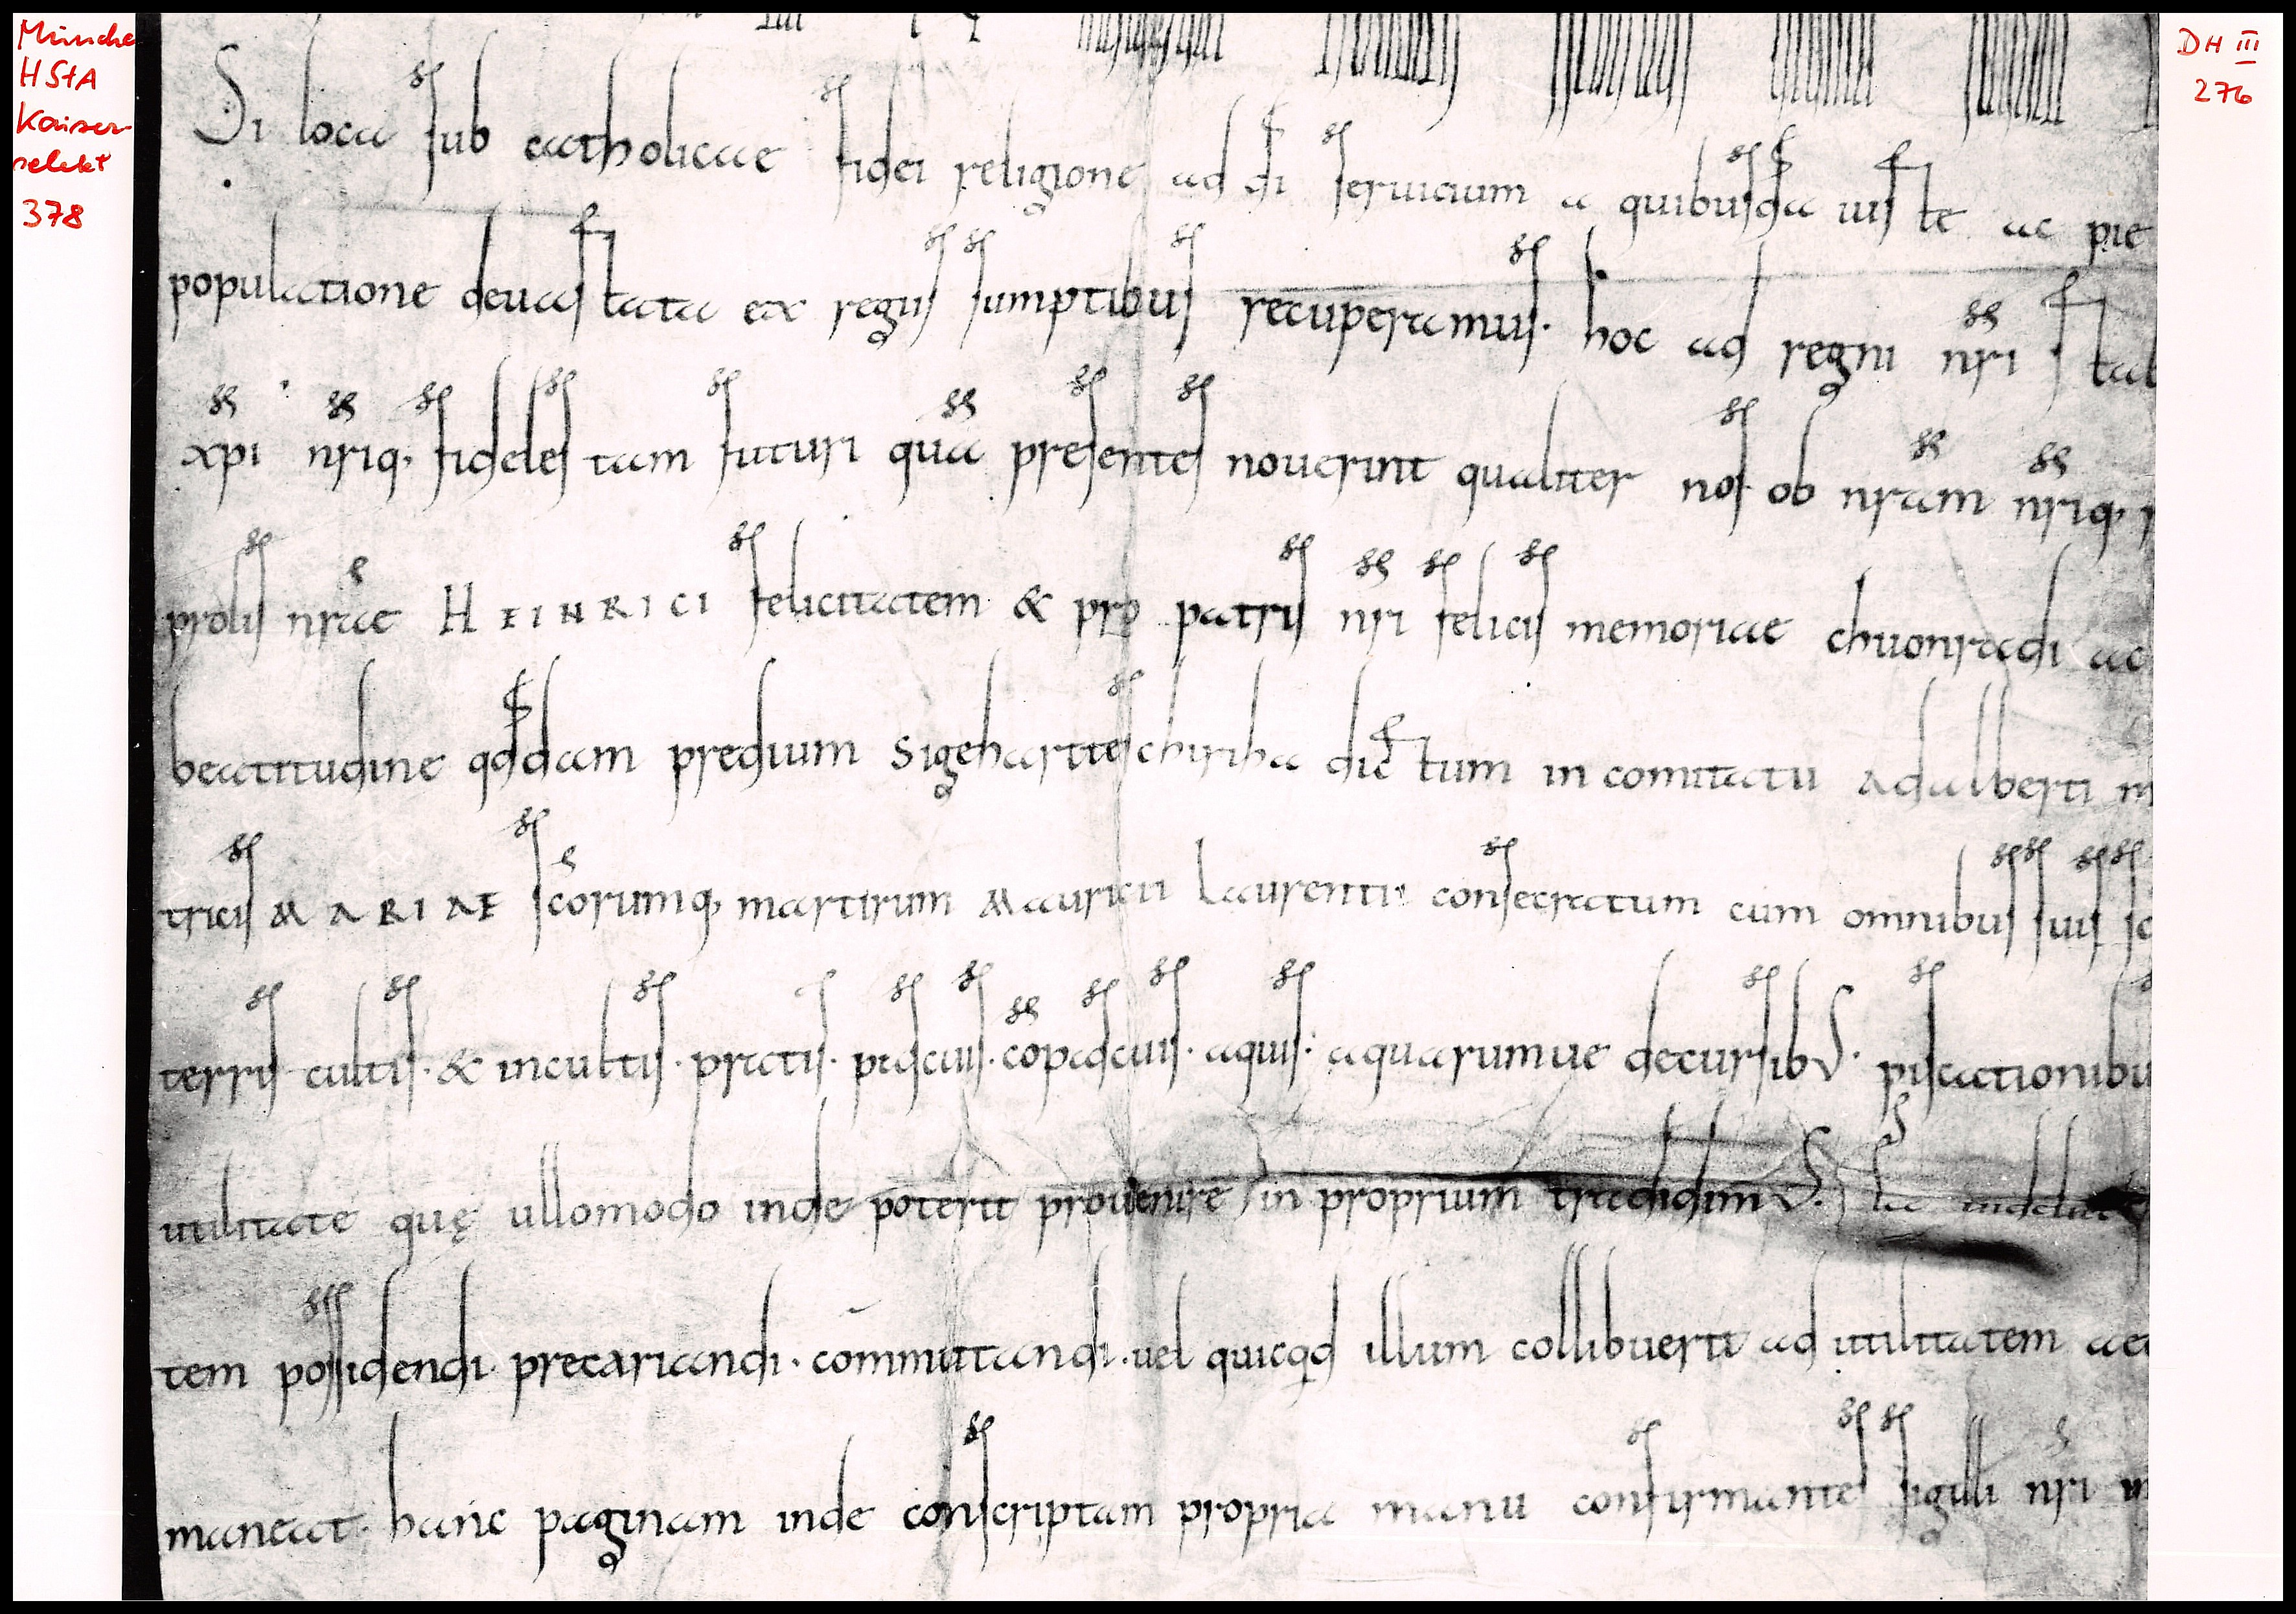 Münche
HStA
Kaiser
selekt
378
DH III
276
Si loca sub catholicae fidei religione ad di seruicium a quibusda iuste ac pie
populatione deuastata ex regiis sumptibus recuperamus. hoc ad regni nri stab
xpi nriq; fideles tam futuri qua presentes nouerint qualiter nos ob nram nriq;
prolis nrae HEINRICI felicitatem & pro patris nri felicis memoriae chuonradi ac
beatitudine qddam predium Sigehartteschiriha dictum in comitatu Adalberti m
tricis MARIAE scorumq; martirum Mauricii Laurentii consecratum cum omnibus suis
terris cultis. & incultis. pratis. pascuis. copascuis. aquis: aquarumue decursibus. piscationibu
utilitate quę ullomodo inde poterit prouenire in proprium tradidimus.
tem possidendi precariandi. commutandi. uel quicqd illum collibuerit ad utilitatem
maneat. hanc paginam inde conscriptam propria manu confirmantes sigilli nri